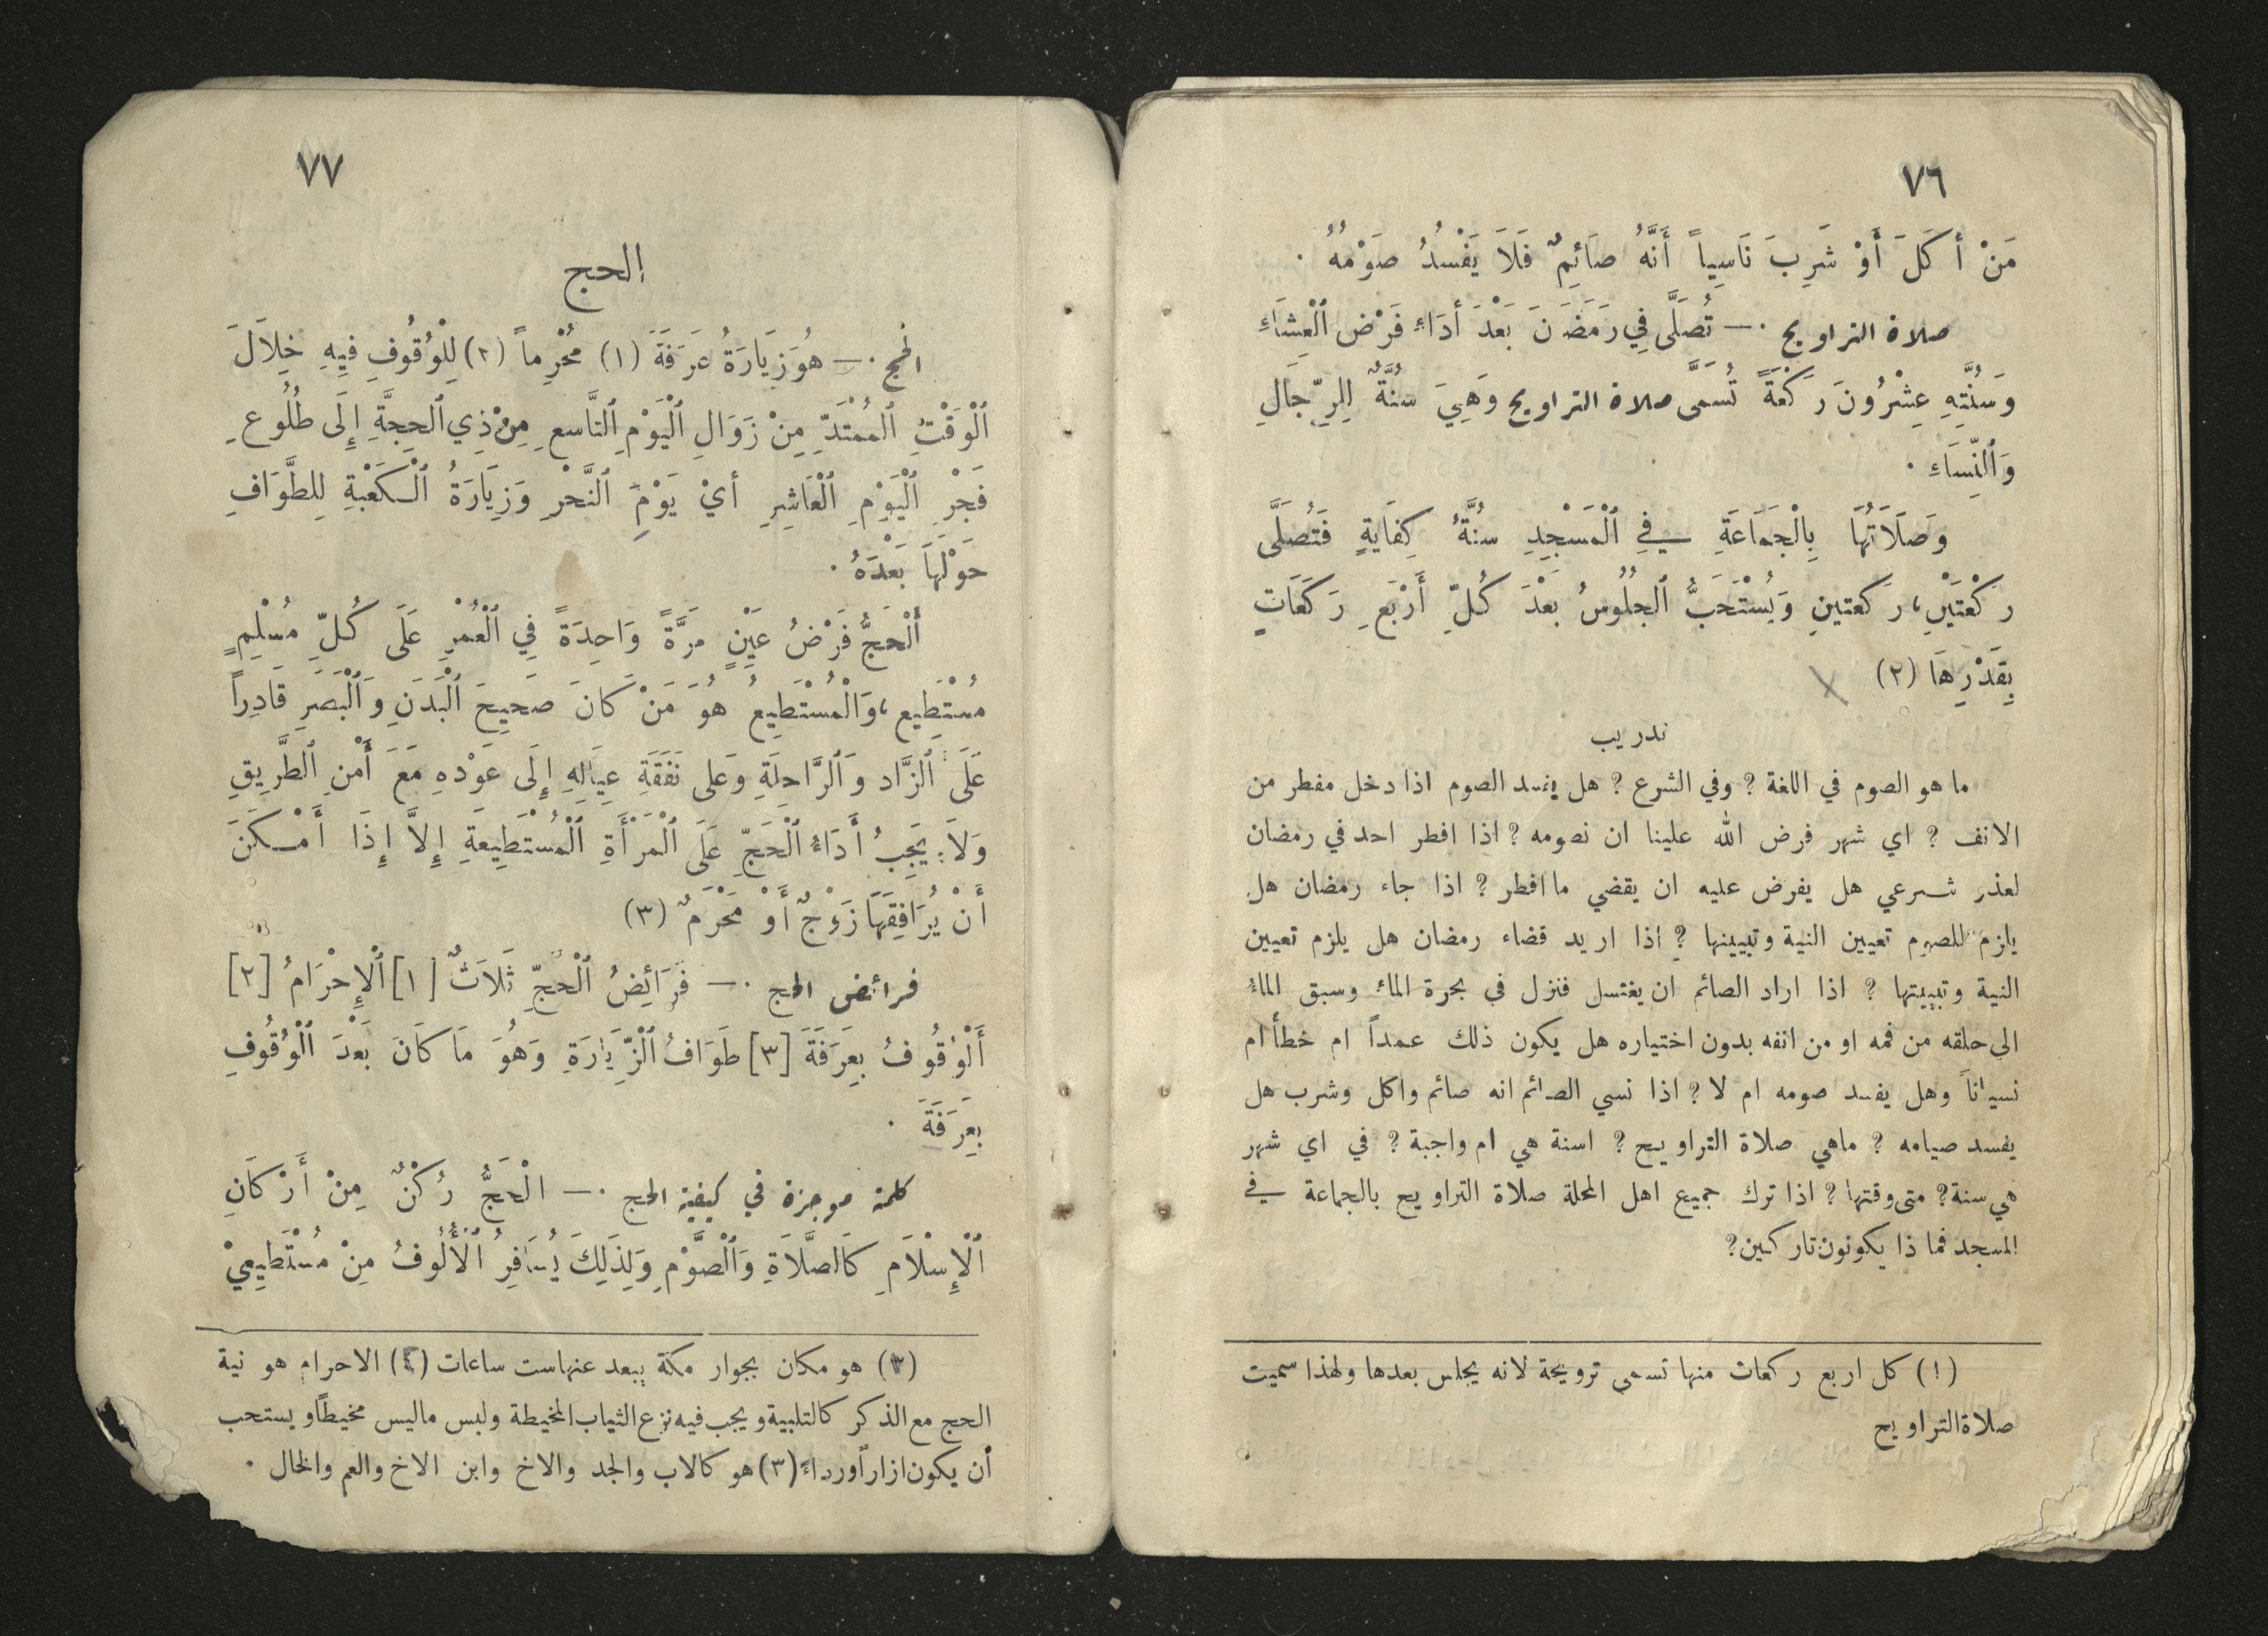 ٧٦
مَنْ أَكَلَ أَوْ شَرِبَ نَاسِياً أَنَّهُ صَائِمٌ فَلاَ يَفْسُدُ صَوْمُهُ .
صلاة التراويح .— تُصَلَّى فِي رَمَضَنَ بَعْدَ أَدَاءِ فَرْضِ ٱلْعِشَاءِ
وَسُنَّتِهِ عِشْرُونَ رَكْعَةً تُسَمَّى صلاة التراويح وَهِيَ سُنَّةٌ لِلرِّجَالِ
وَٱلنِّسَاءِ .
وَصَلَاَتُهَا بِالْجَمَاعَةِ فِي ٱلْمَسْجِدِ سُنَّةُ كِفَايَةٍ فَتُصَلَّى
رَكْعَتَيْنِ، رَكعتينِ وَيُسْتَحَبُّ ٱلجلُوسُ بَعْدَ كُلِّ أَرْبَعِ رَكَعَاتٍ
بِقَدْرِهَا (٢)
تدريب
ما هو الصوم في اللغة ? وفي الشرع ? هل يفسد الصوم اذا دخل مفطر من
الانف ? اي شهر فرض الله علينا ان نصومه ? اذا افطر احد في رمضان
لعذر شرعي هل يفرض عليه ان يقضي ما افطر ? اذا جاء رمضان هل
يلزم للصوم تعيين النية وتبييتها ? اذا اريد قضاء رمضان هل يلزم تعيين
النية وتبييتها ? اذا اراد الصائم ان يغتسل فنزل في بحرة الماء وسبق الماء
الى حلقه من فمه او من انفه بدون اختياره هل يكون ذلك عمداً ام خطأ ام
نسياناً وهل يفسد صومه ام لا ? اذا نسي الصائم انه صائم واكل وشرب هل
يفسد صيامه ? ماهي صلاة التراويح ? اسنة هي ام واجبة ? في اي شهر
هي سنة? متى وقتها ? اذا ترك جميع اهل المحلة صلاة التراويح بالجماعة في
المسجد فما ذا يكونون تاركين?
(١) كل اربع ركعات منها تسمى ترويحة لانه يجلس بعدها ولهذا سميت
صلاة التراويح
٧٧
الحج
الحج .— هُوَ زِيَارَةُ عَرَفَةَ (١) مُحْرِماً (٢) لِلْوُقُوفِ فِيهِ خِلَالَ
ٱلْوَقْتِ ٱلْممْتَدِّ مِنْ زَوَالِ ٱلْيَوْمِ ٱلتَّاسعِ مِنْ ذِي ٱلحِجَّةِ إِلَى طُلُوعِ
فَجْرِ ٱلْيَوْمِ ٱلْعَاشِرِ أيْ يَوْمِ ٱلنَّحْرِ وَزِيَارَةُ ٱلْكَعْبَةِ لِلطَّوَافِ
حَوْلَهَا بَعْدَهُ .
أَلْحَجُّ فَرْضُ عَيْنٍ مَرَّةً وَاحِدَةً فِي ٱلْعُمْرِ عَلَى كُلِّ مُسْلِمٍ
مُسْتَطِيعٍ، وَٱلْمُسْتَطِيعُ هُوَ مَنْ كَانَ صَحِيحَ ٱلْبَدَنِ وَٱلْبَصَرِ قَادِراً
عَلَى ٱلزَّادِ وَٱلرَّاحِلَةِ وَعَلى نَفَقَةِ عِيَالِهِ إِلَى عَوْدهِ مَعَ أَمْنِ ٱلطَّرِيقِ
وَلَا يَجِبُ أَدَاءُ ٱلْحَجِّ عَلَى ٱلْمَرْأَةِ ٱلْمُسْتَطِيعَةِ إِلاَّ إِذَا أَمْكَنَ
أَنْ يُرَافِقَهَا زَوْجٌ أَوْ مَحْرَمٌ (٣)
فرائض الحج .— فَرَائِضُ ٱلْحَجِّ ثَلَاثٌ [١] ٱلْإِحْرَامُ [٢]
أَلْوُقُوفُ بِعَرَفَةَ [٣] طَوَافُ ٱلزِّيَارَةِ وَهُوَ مَا كَانَ بَعْدَ ٱلْوُقُوفِ
بِعَرَفَةَ .
كلمة موجزة في كيفية الحج .— الْحَجُّ رُكْنٌ مِنْ أَرْكَانِ
ٱلْإِسْلَامِ كَالصَّلَاةِ وَٱلْصَّوْمِ وَلِذَلِكَ يُسَافِرُ ٱلْأُلُوفُ مِنْ مُسْتَطِيعِيْ
(١) هو مكان بجوار مكة يبعد عنها ست ساعات (٢) الاحرام هو نية
الحج مع الذكر كالتلبية ويجب فيه نزع الثياب المخيطة ولبس ماليس مخيطاً ويستحب
أن يكون ازاراً ورداءً (٣) هو كالاب والجد والاخ وابن الاخ والعم والخال .